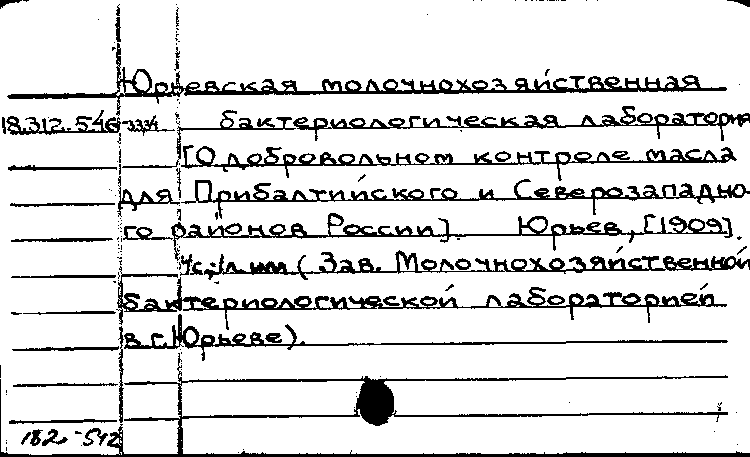 Юрьевская молочнохозяйственная
18.312.546 бактериологическая лаборатория
[О добровольном контроле масла
для Прибалтийского и Северозападно-
го районов России]. Юрьев, [1909].
(Зав. Молочнохозяйственной
бактериологической лабораторией
в г. Юрьеве).
182-542